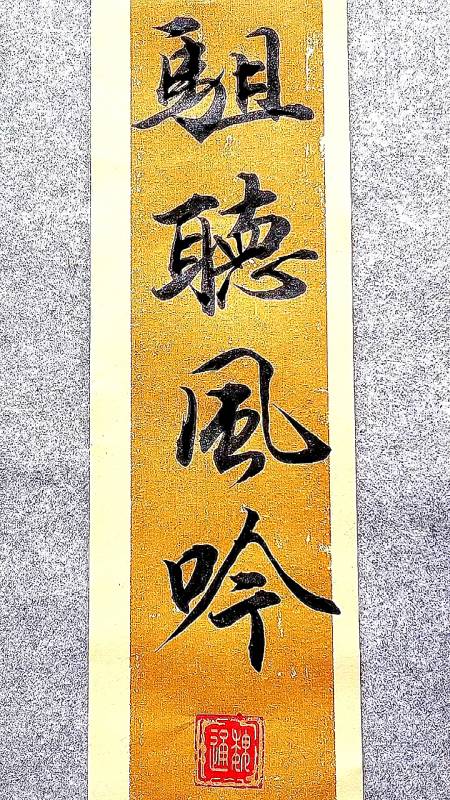 駔聽風吟